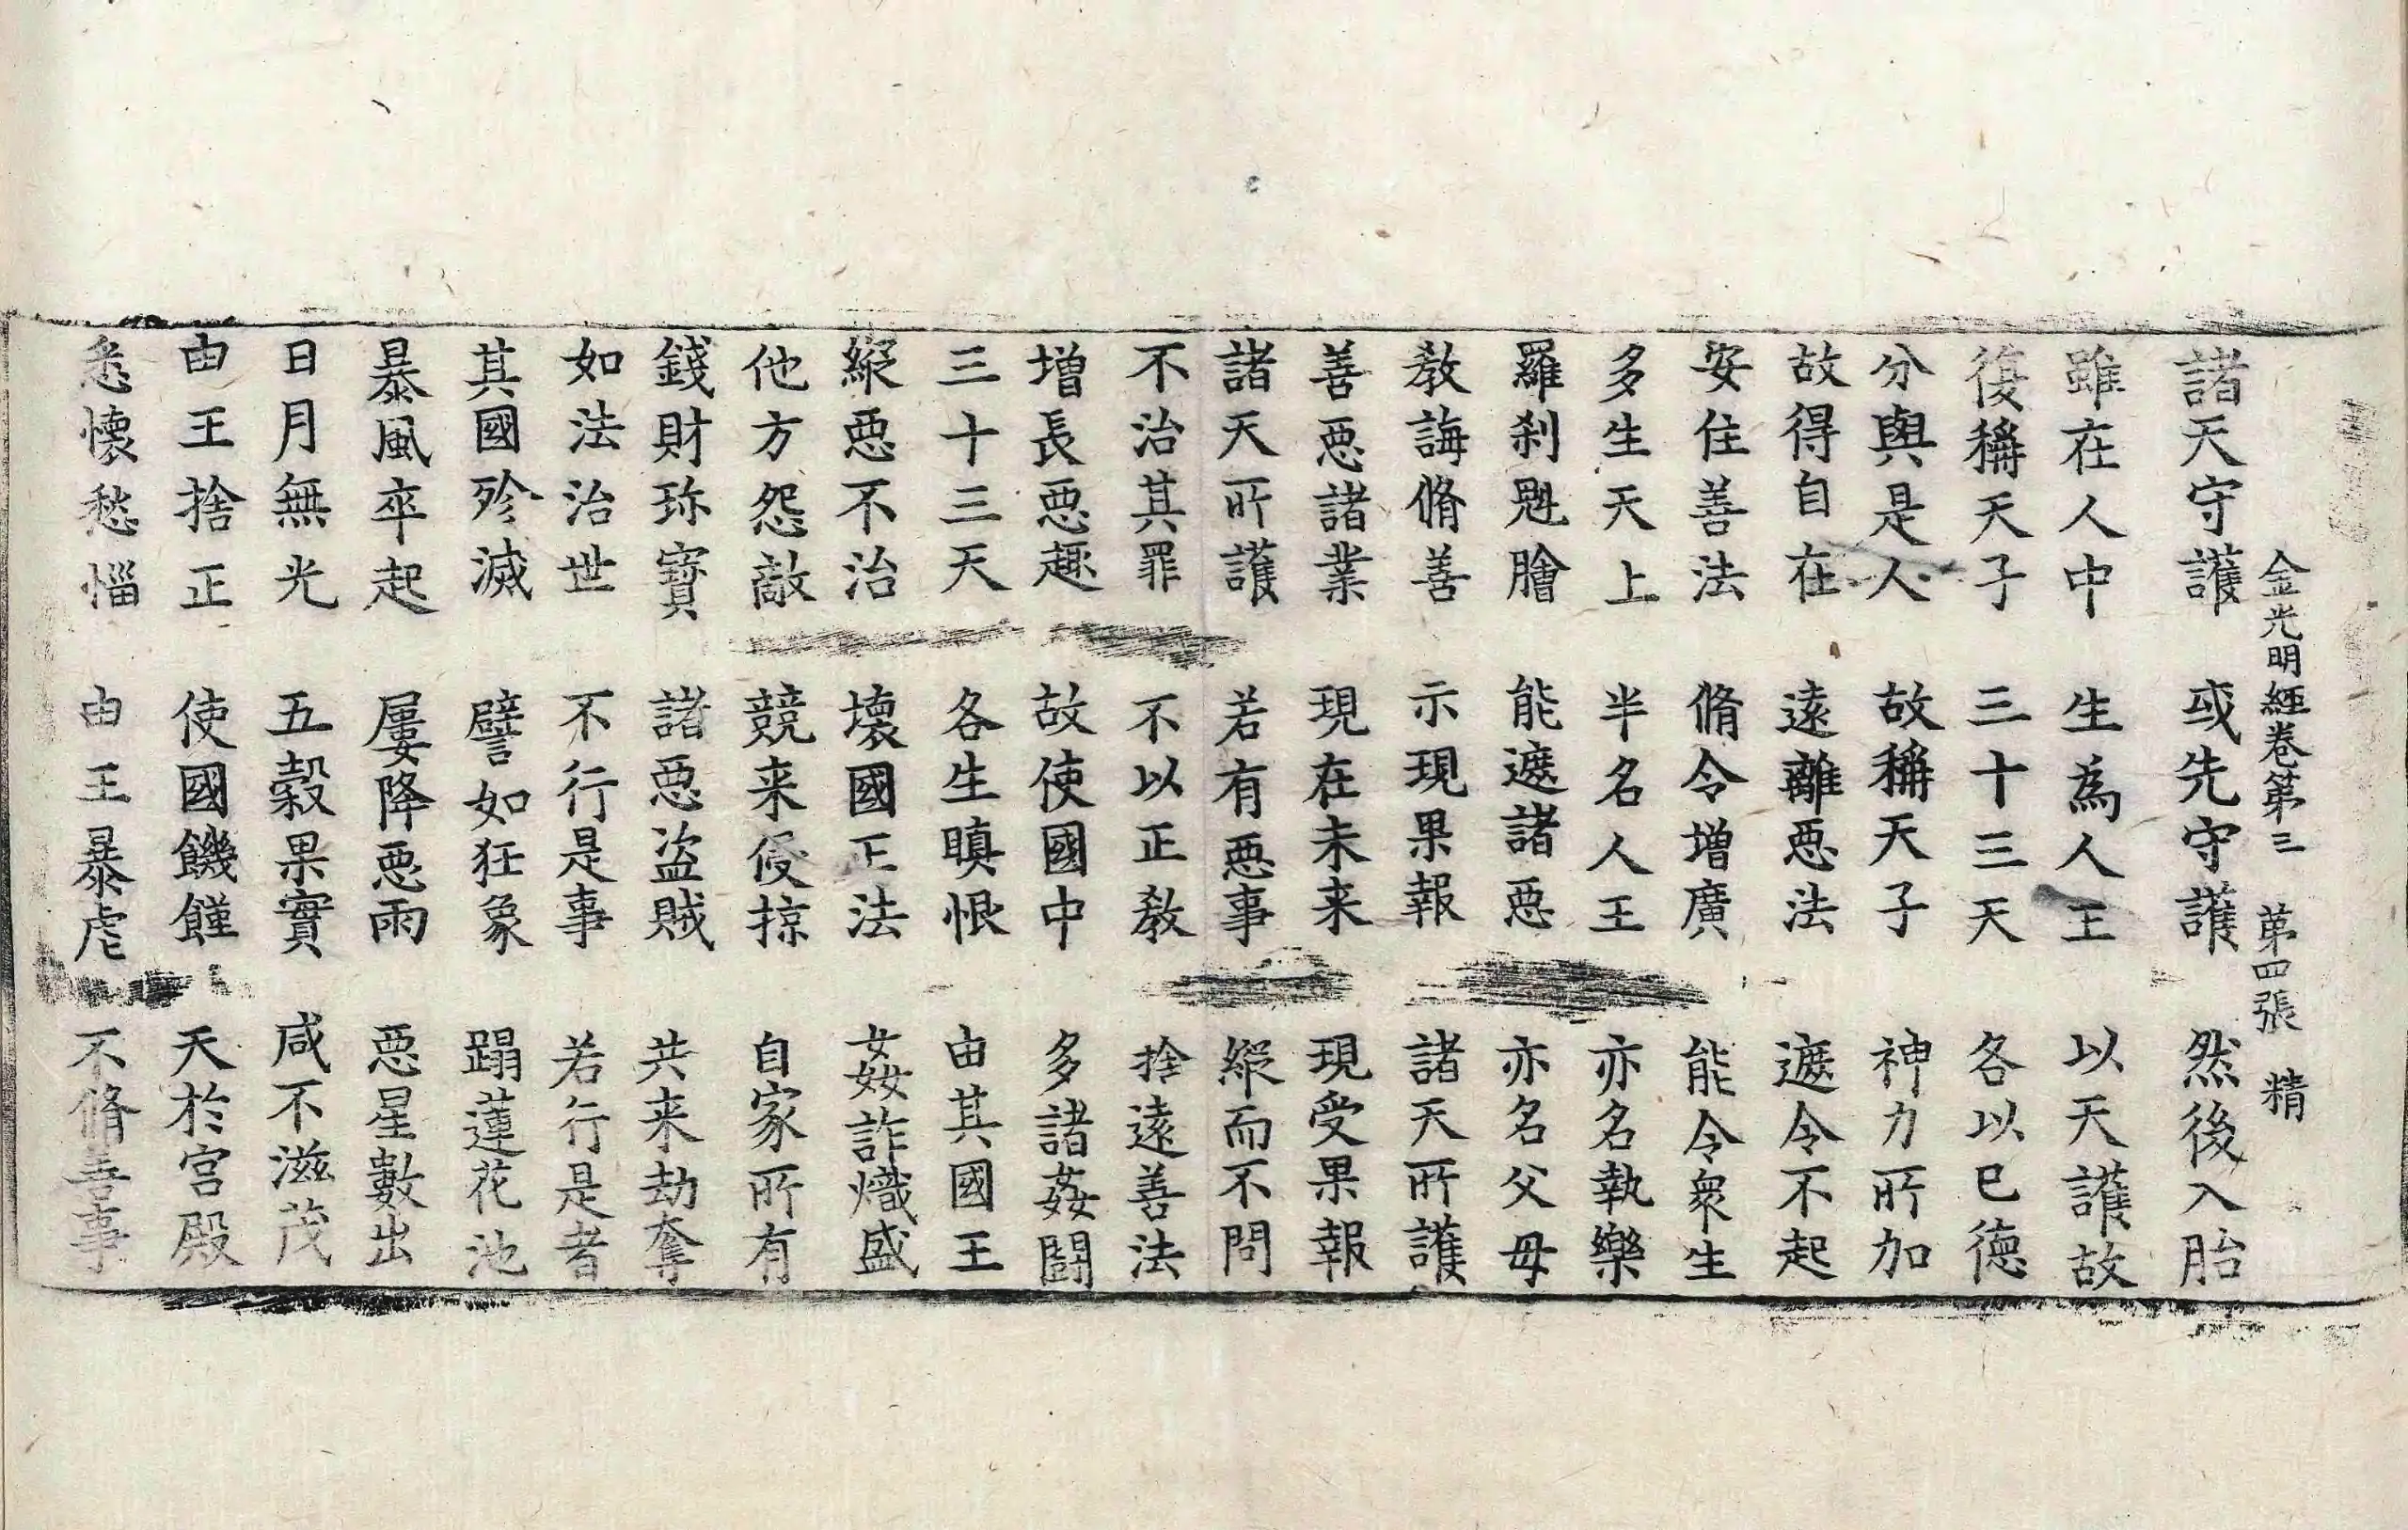 金光明經卷第三　第四張　精
諸天守護　或先守護　然後入胎
雖在人中　生為人王　以天護故
復稱天子　三十三天　各以己德
分與是人　故稱天子　神力所加
故得自在　遠離惡法　遮令不起
安住善法　脩令增廣　能令衆生
多生天上　半名人王　亦名執樂
羅剎魁膾　能遮諸惡　亦名父母
教誨脩善　示現果報　諸天所護
善惡諸業　現在未来　現受果報
諸天所護　若有惡事　縱而不問
不治其罪　不以正教　捨遠善法
增長惡趣　故使國中　多諸姦鬪
三十三天　各生瞋恨　由其國王
縱惡不治　壞國正法　姦詐熾盛
他方怨敵　競来侵掠　自家所有
錢財珎寶　諸惡盜賊　共来劫奪
如法治世　不行是事　若行是者
其國殄滅　譬如狂象　蹋蓮花池
暴風卒起　屢降惡雨　惡星數出
日月無光　五穀果實　咸不滋茂
由王捨正　使國饑饉　天於宮殿
悉懷愁惱　由王暴虐　不脩善事